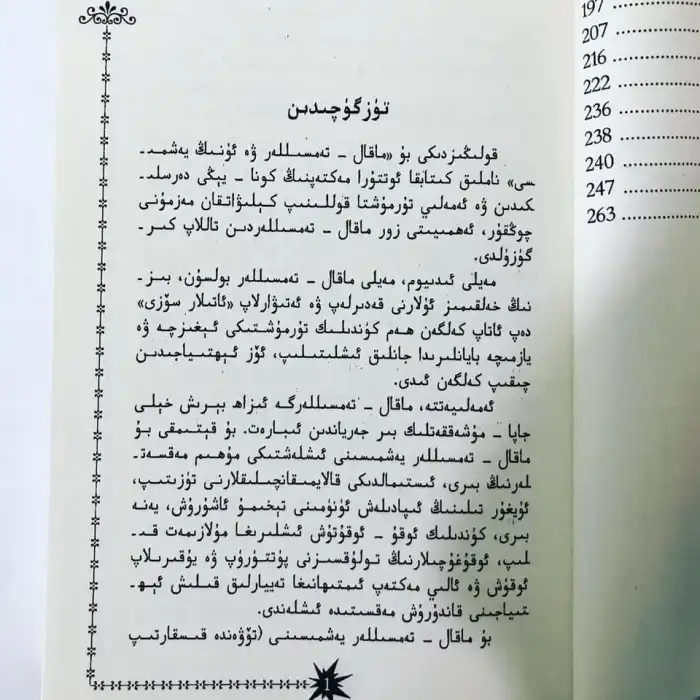 تۈزگۈچىدىن
قولىڭىزدىكى بۇ «ماقال ـ تەمسىللەر ۋە ئۇنىڭ يەشمىـ
سى» ناملىق كىتابقا ئوتتۇرا مەكتەپنىڭ كونا ـ يېڭى دەرسلىـ
كىدىن ۋە ئەمەلىي تۇرمۇشتا قوللىنىپ كېلىۋاتقان مەزمۇنى
چوڭقۇر، ئەھمىيىتى زور ماقال ـ تەمسىللەردىن تاللاپ كىرـ
گۈزۈلدى.
مەيلى ئىدىيوم، مەيلى ماقال ـ تەمسىللەر بولسۇن، بىزـ
نىڭ خەلقىمىز ئۇلارنى قەدىرلەپ ۋە ئەتىۋارلاپ «ئاتىلار سۆزى»
دەپ ئاتاپ كەلگەن ھەم كۈندىلىك تۇرمۇشتىكى ئېغىزچە ۋە
يازمىچە بايانلىرىدا جانلىق ئىشلىتىلىپ، ئۆز ئېھتىياجىدىن
چىقىپ كەلگەن ئىدى.
ئەمەلىيەتتە، ماقال ـ تەمسىللەرگە ئىزاھ بېرىش خېلى
جاپا ـ مۇشەققەتلىك بىر جەرياندىن ئىبارەت. بۇ قېتىمقى بۇ
ماقال ـ تەمسىللەر يەشمىسىنى ئىشلەشتىكى مۇھىم مەقسەتـ
لەرنىڭ بىرى، ئىستىمالدىكى قالايمىقانچىلىقلارنى تۈزىتىپ،
ئۇيغۇر تىلىنىڭ ئىپادىلەش ئۈنۈمىنى تېخىمۇ ئاشۇرۇش، يەنە
بىرى، كۈندىلىك ئوقۇ ـ ئوقۇتۇش ئىشلىرىغا مۇلازىمەت قىـ
لىپ، ئوقۇغۇچىلارنىڭ تولۇقسىزنى پۈتتۈرۈپ ۋە يۇقىرىلاپ
ئوقۇش ۋە ئالىي مەكتەپ ئىمتىھانىغا تەييارلىق قىلىش ئېھـ
تىياجىنى قاندۇرۇش مەقسىتىدە ئىشلەندى.
بۇ ماقال ـ تەمسىللەر يەشمىسىنى (تۆۋەندە قىسقارتىپ
1
197
207
216
222
236
238
240
247
263